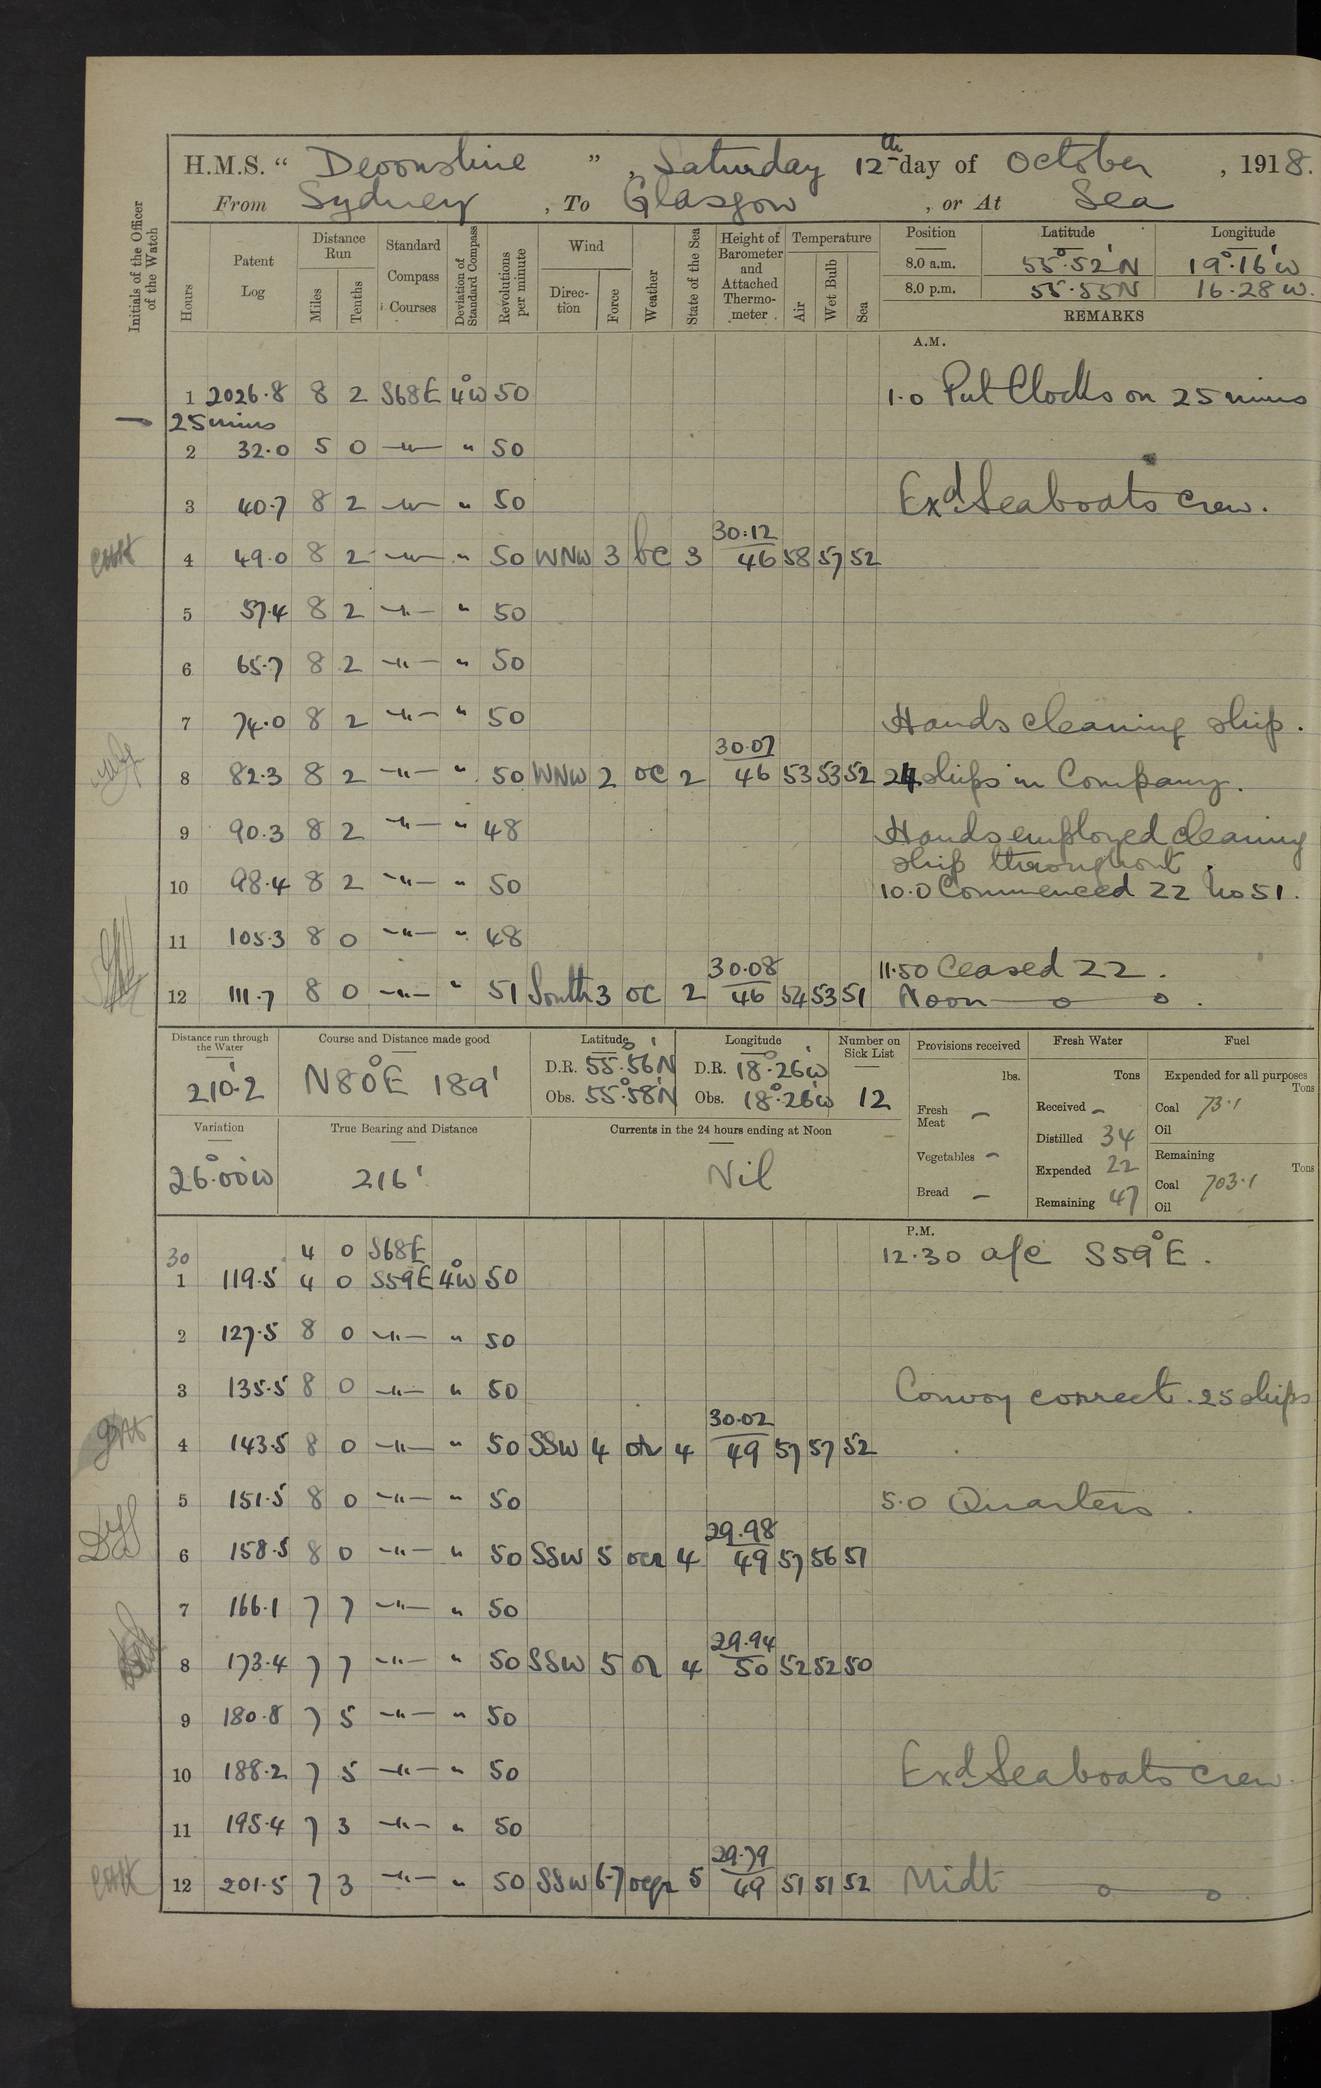 H.M.S. " Devonshire ", Saturday 12th day of October, 1918.
From Sydney, To Glasgow, or At Sea
Initials of the Officer of the Watch
Hours
Patent Log
Distance Run
Miles
Tenths
Standard Compass Courses
Deviation of Standard Compass
Revolutions per minute
Wind
Direction
Force
Weather
State of the Sea
Height of Barometer and Attached Thermometer
Temperature
Air
Wet Bulb
Sea
Position Latitude Longitude
8.0 a.m. 55°·52'N 19°·16'W
8.0 p.m. 55·55N 16·28W.
REMARKS
A.M.
1 2026·8 8 2 S68E 4°W 50 1·0 Put Clocks on 25 mins
25 mins
2 32·0 5 0 —"— " 50
3 40·7 8 2 —"— " 50 Exd. Seaboats crew.
4 49·0 8 2 —"— " 50 WNW 3 bc 3 30·12 46 58 57 52
5 57·4 8 2 —"— " 50
6 65·7 8 2 —"— " 50
7 74·0 8 2 —"— " 50 Hands cleaning ship.
8 82·3 8 2 —"— " 50 WNW 2 oc 2 30·07 46 53 53 52 24 ships in Company.
9 90·3 8 2 —"— " 48 Hands employed cleaning
ship throughout.
10 98·4 8 2 —"— " 50 10·0 Commenced 22 No 51.
11 105·3 8 0 —"— " 48
11·50 Ceased 22.
12 111·7 8 0 —"— " 51 South 3 oc 2 30·08 46 54 53 51 Noon
Distance run through the Water
210·2
Course and Distance made good
N80°E 189'
Latitude
D.R. 55°·56'N
Obs. 55°·58'N
Longitude
D.R. 18°·26'W
Obs. 18°·26'W
Number on Sick List
12
Provisions received
lbs.
Fresh Meat —
Vegetables —
Bread —
Fresh Water
Tons
Received —
Distilled 34
Expended 22
Remaining 47
Fuel
Expended for all purposes
Tons
Coal 73·1
Oil
Remaining
Tons
Coal 703·1
Oil
Variation
26°·00'W
True Bearing and Distance
216'
Currents in the 24 hours ending at Noon
Nil
P.M.
30 4 0 S68E 12·30 a/c S59°E.
1 119·5 4 0 S59E 4°W 50
2 127·5 8 0 —"— " 50
3 135·5 8 0 —"— " 50 Convoy correct. 25 ships
4 143·5 8 0 —"— " 50 SSW 4 or 4 30·02 49 57 57 52
5 151·5 8 0 —"— " 50 5·0 Quarters.
6 158·5 8 0 —"— " 50 SSW 5 ocr 4 29·98 49 57 56 51
7 166·1 7 7 —"— " 50
8 173·4 7 7 —"— " 50 SSW 5 or 4 29·94 50 52 52 50
9 180·8 7 5 —"— " 50
10 188·2 7 5 —"— " 50 Exd. Seaboats crew.
11 195·4 7 3 —"— " 50
12 201·5 7 3 —"— " 50 SSW 6-7 ocqr 5 29·79 49 51 51 52 Midt